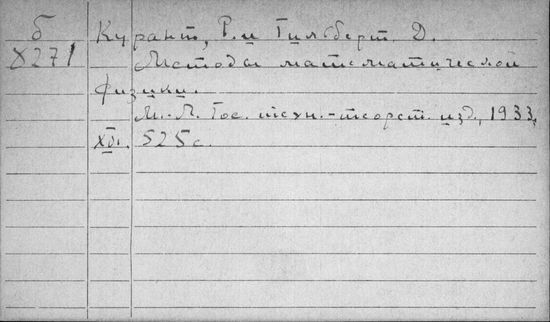 б Курант, Р. и Гильберт Д.
8271 Методы математической
физики.
М.-Л. Гос. техн.-теорет. изд., 1933,
525 с.